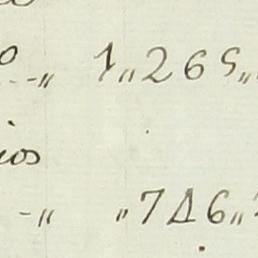 o -„ 1„265„
ios
-„ „746„